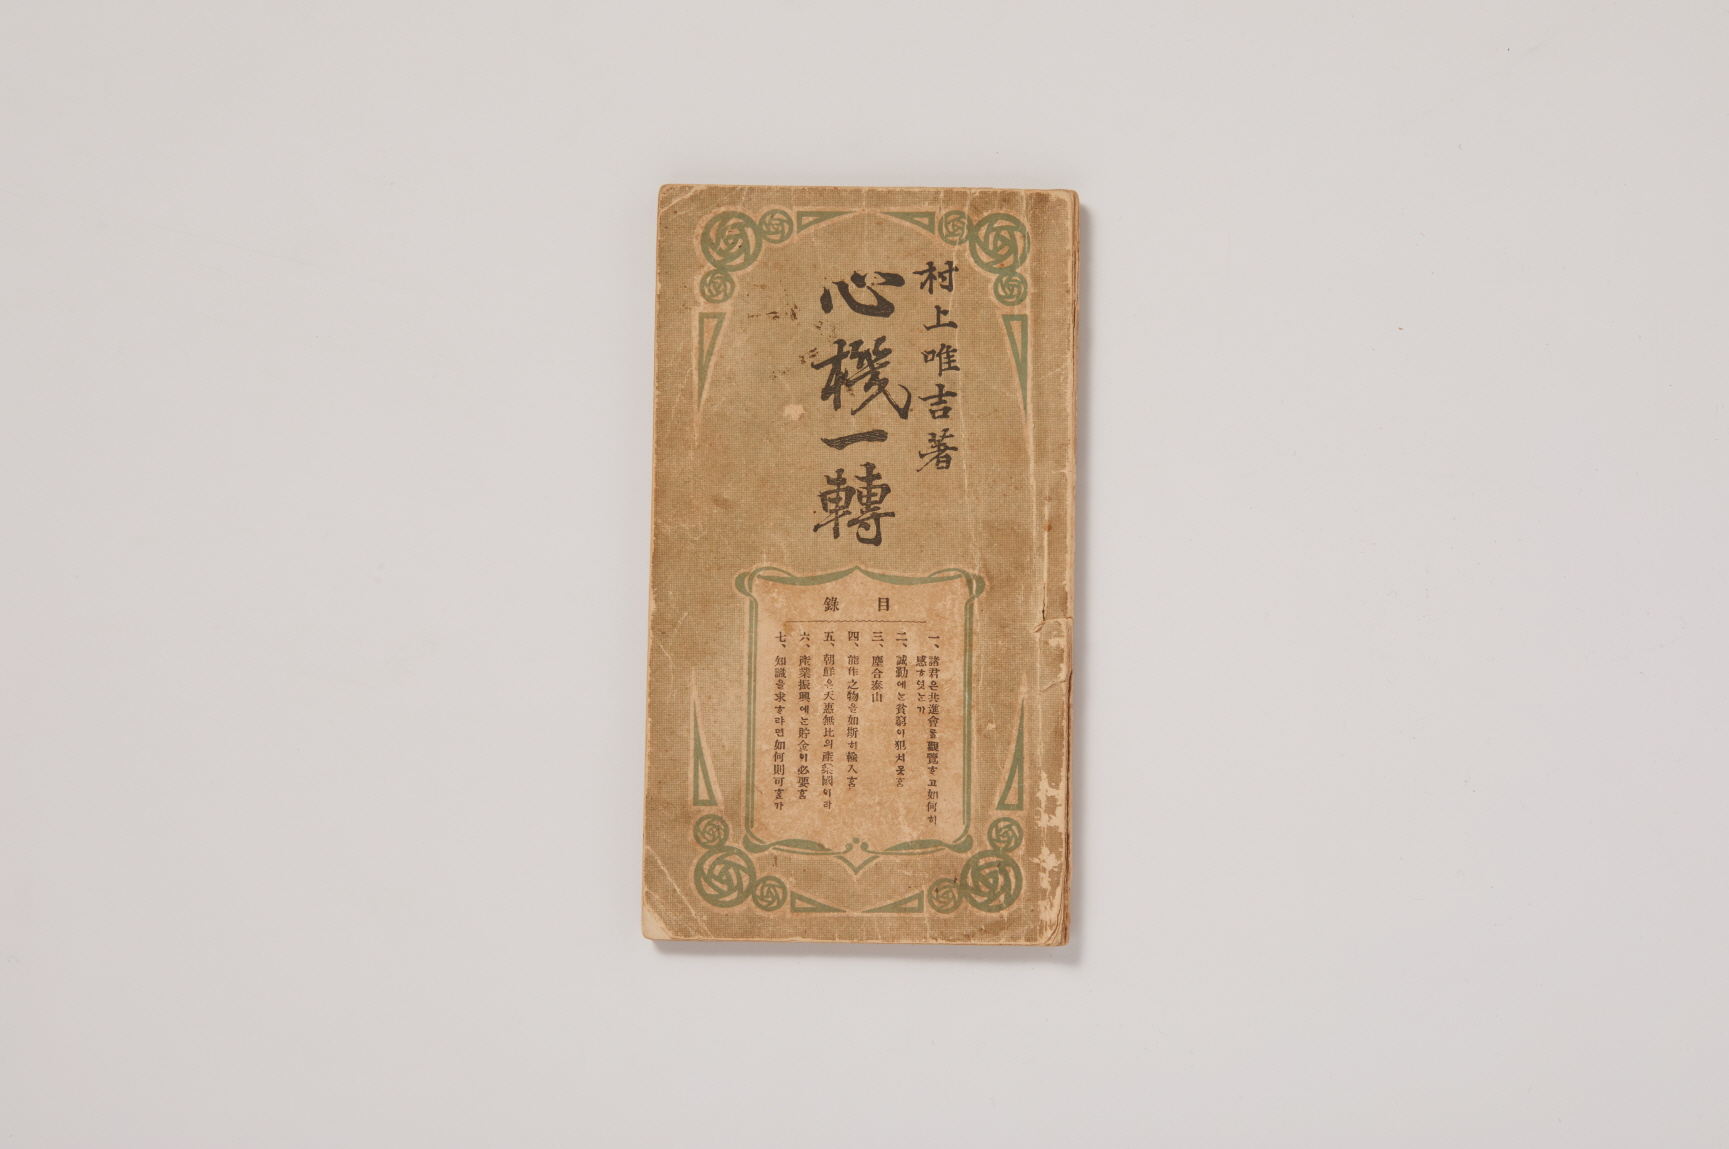 村上唯吉著
心機一轉
目錄
一、諸君은共進會를觀覽ᄒᆞ고如何히
感ᄒᆞ엿ᄂᆞᆫ가
二、誠勤에ᄂᆞᆫ貧窮이犯치못ᄒᆞᆷ
三、塵合泰山
四、能作之物을如斯히輸入ᄒᆞᆷ
五、朝鮮은天惠無比의產業國이라
六、產業振興에ᄂᆞᆫ貯金이必要ᄒᆞᆷ
七、知識을求ᄒᆞ랴면如何則可ᄒᆞᆯ가